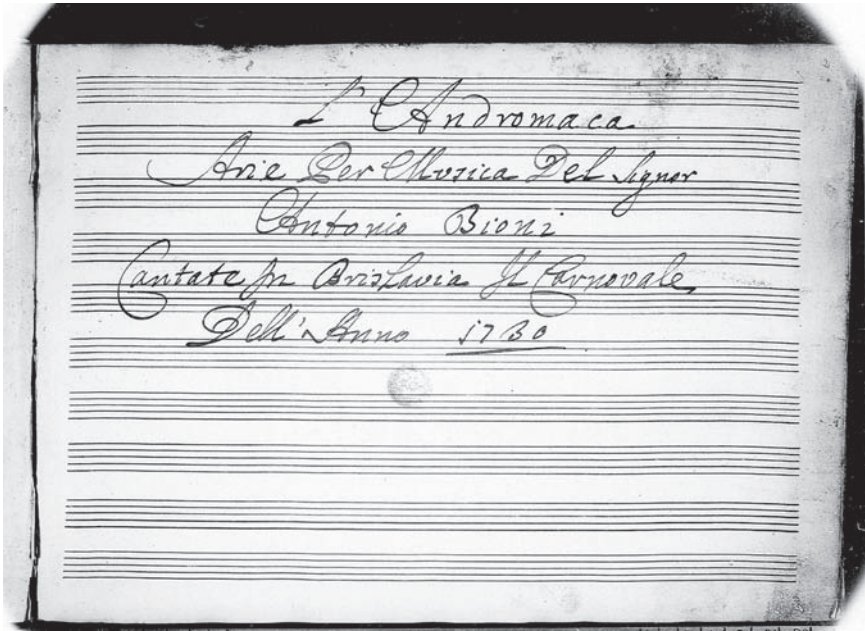 L'Andromaca
Arie Per Musica Del Signor
Antonio Bioni
Cantate In Brislavia Il Carnovale
Dell'Anno 1730